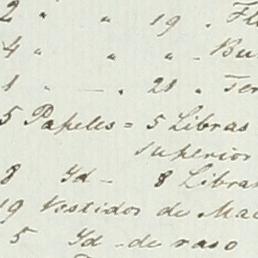 2 " " 19 " Fl
4 " " " - Bu
1 " - . 21 " Ter
5 Papeles = 5 Libras
superior
8 Id - 8 Libra
19 Vestidos de Mac
5 Id - de raso